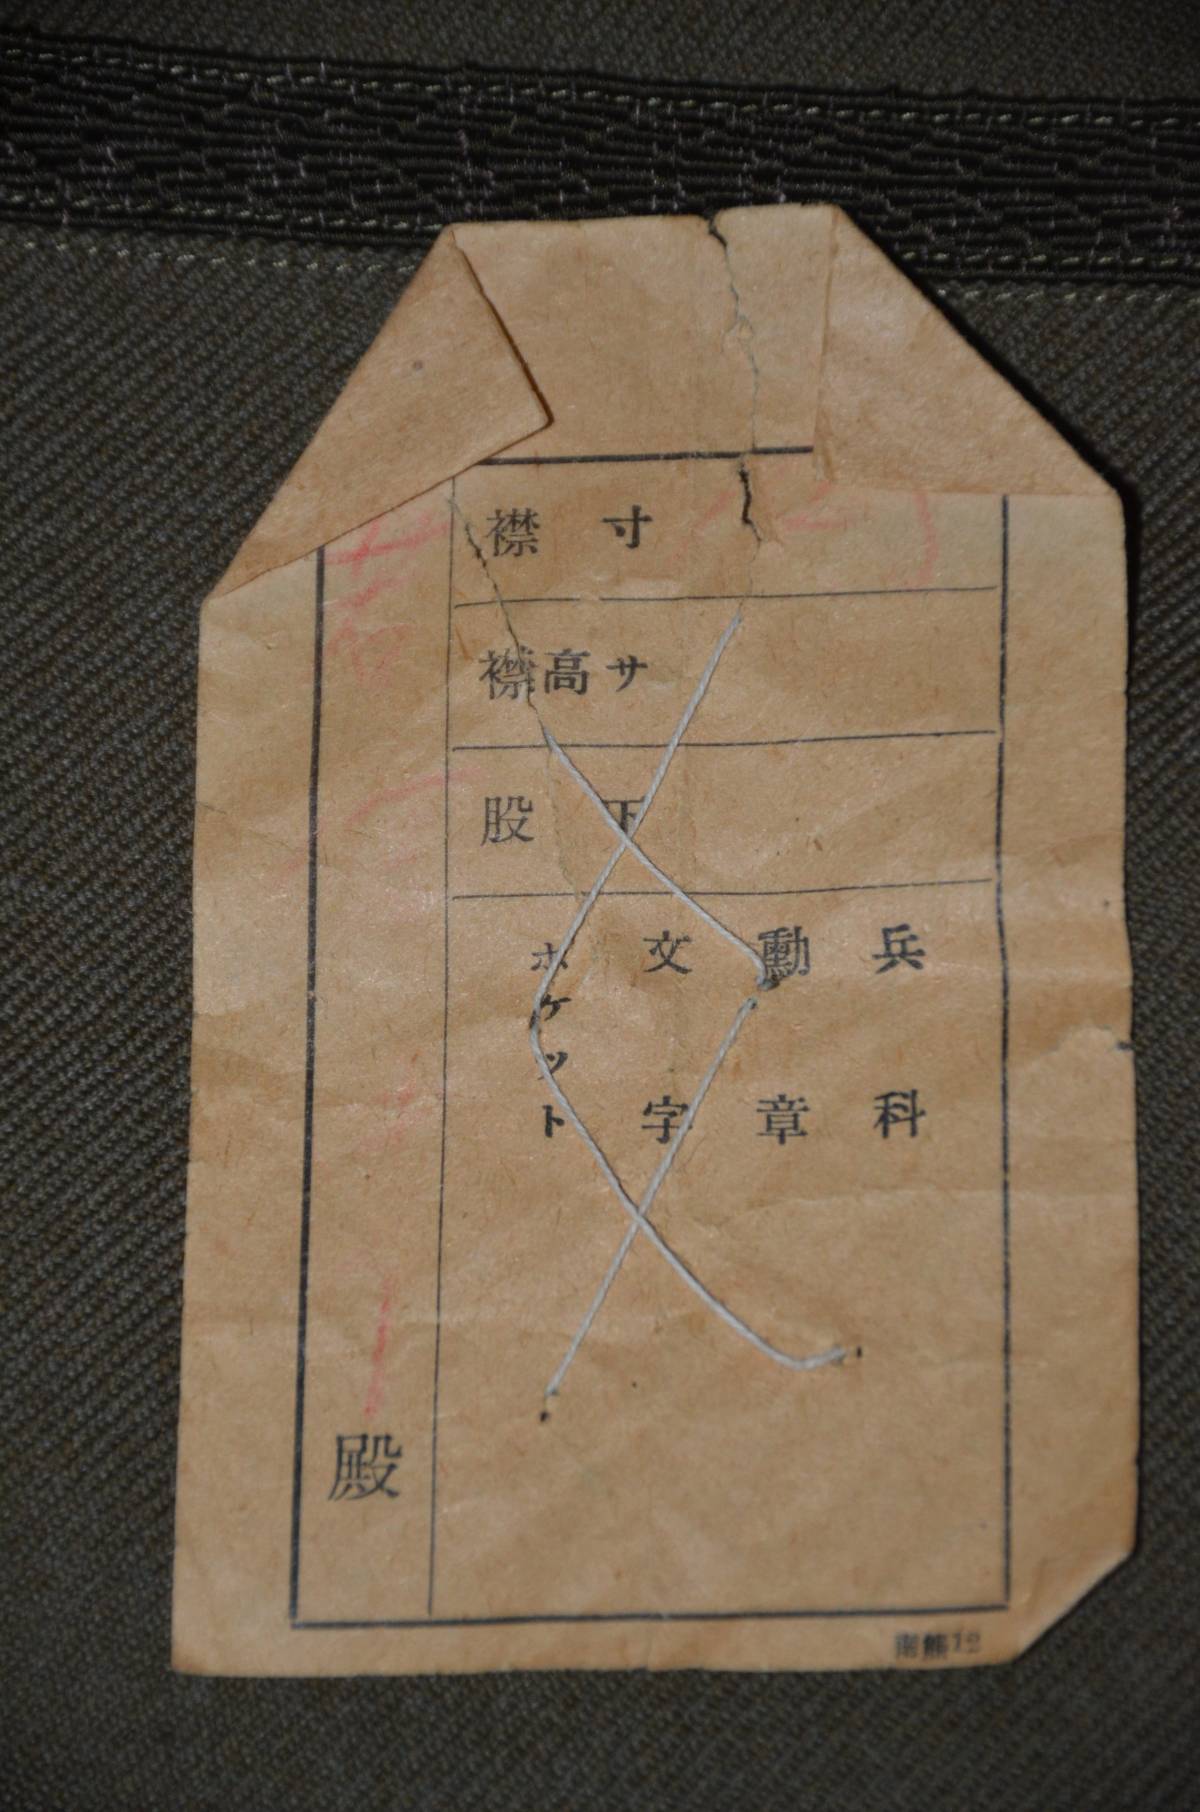 襟 寸
襟高サ
股 下
兵科
勳章
文字
ポケット
殿
南熊12